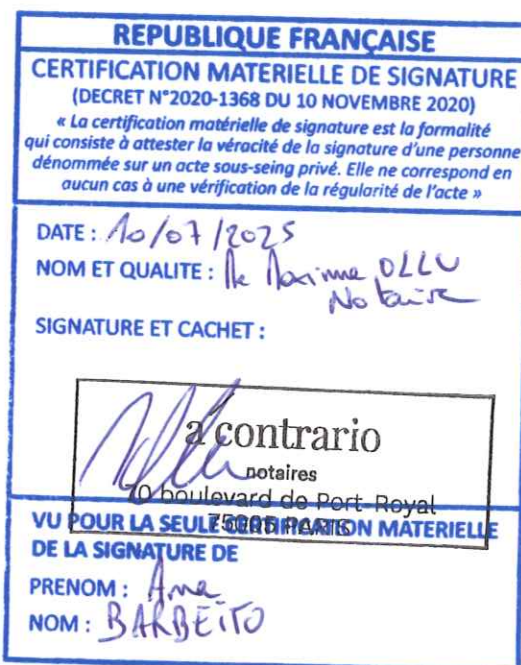 REPUBLIQUE FRANÇAISE
CERTIFICATION MATERIELLE DE SIGNATURE
(DECRET N°2020-1368 DU 10 NOVEMBRE 2020)
« La certification matérielle de signature est la formalité
qui consiste à attester la véracité de la signature d'une personne
dénommée sur un acte sous-seing privé. Elle ne correspond en
aucun cas à une vérification de la régularité de l'acte »
DATE : 10/07/2025
NOM ET QUALITE : Me Maxime OLLU
Notaire
SIGNATURE ET CACHET :
a contrario
notaires
70 boulevard de Port-Royal
75005 PARIS
VU POUR LA SEULE CERTIFICATION MATERIELLE
DE LA SIGNATURE DE
PRENOM : Ana
NOM : BARBEITO